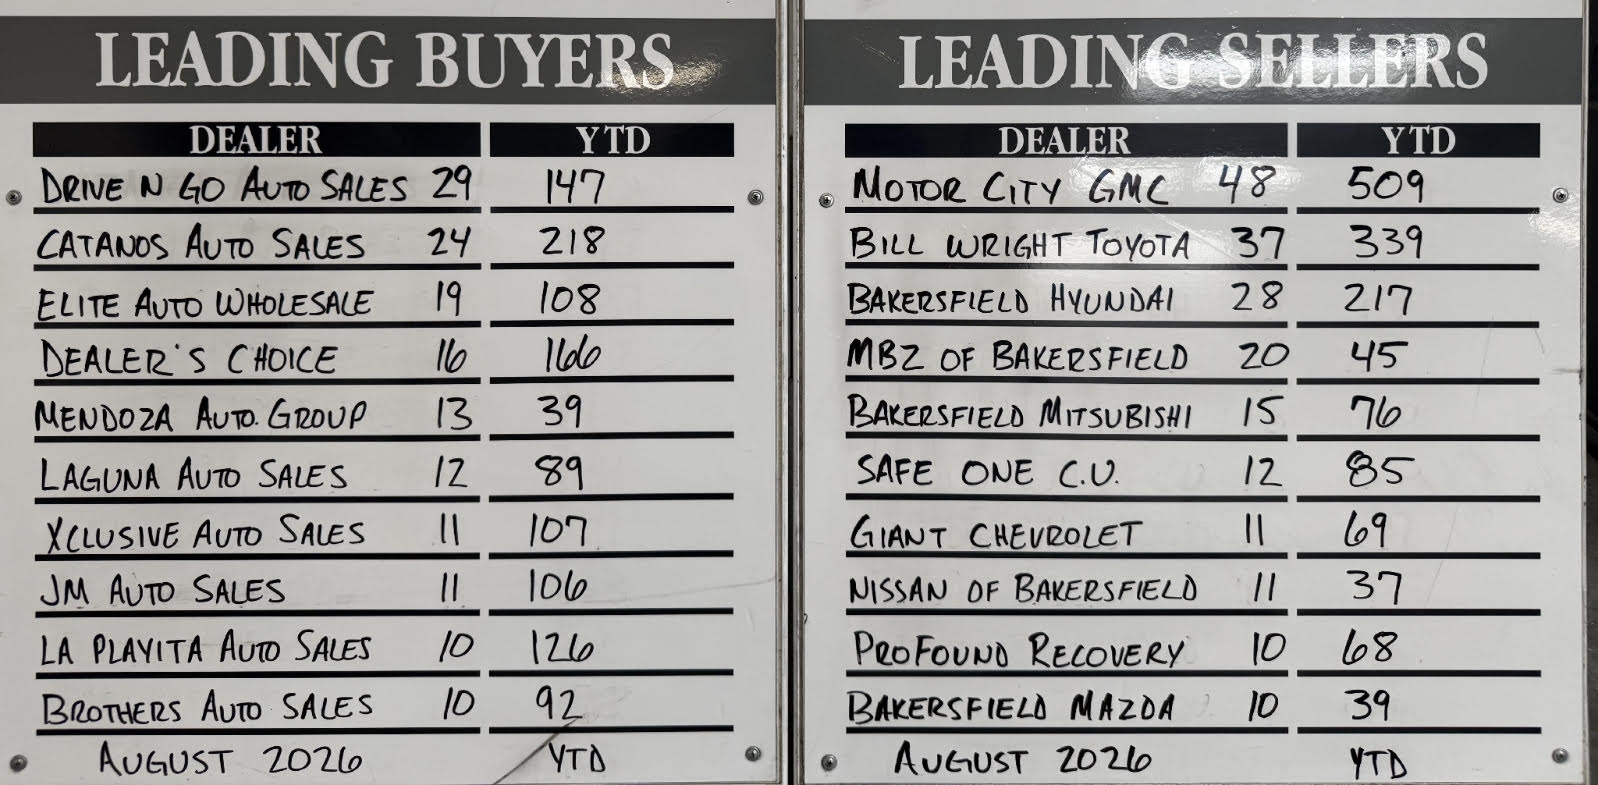 LEADING BUYERS
DEALER YTD
DRIVE N GO AUTO SALES 29 147
CATANOS AUTO SALES 24 218
ELITE AUTO WHOLESALE 19 108
DEALER'S CHOICE 16 166
MENDOZA AUTO. GROUP 13 39
LAGUNA AUTO SALES 12 89
XCLUSIVE AUTO SALES 11 107
JM AUTO SALES 11 106
LA PLAYITA AUTO SALES 10 126
BROTHERS AUTO SALES 10 92
AUGUST 2026 YTD
LEADING SELLERS
DEALER YTD
MOTOR CITY GMC 48 509
BILL WRIGHT TOYOTA 37 339
BAKERSFIELD HYUNDAI 28 217
MBZ OF BAKERSFIELD 20 45
BAKERSFIELD MITSUBISHI 15 76
SAFE ONE C.U. 12 85
GIANT CHEVROLET 11 69
NISSAN OF BAKERSFIELD 11 37
PROFOUND RECOVERY 10 68
BAKERSFIELD MAZDA 10 39
AUGUST 2026 YTD